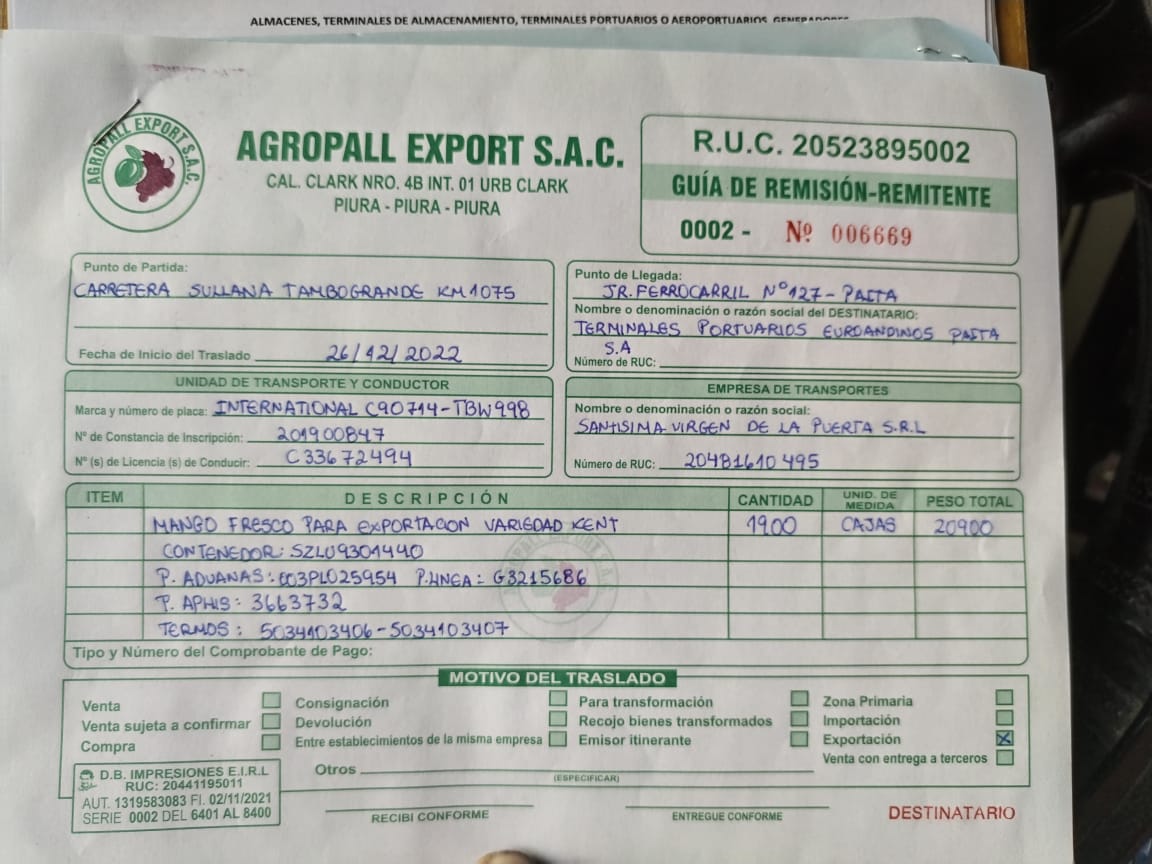 ALMACENES, TERMINALES DE ALMACENAMIENTO, TERMINALES PORTUARIOS O AEROPORTUARIOS, GENERADORES
AGROPALL EXPORT S.A.C.
AGROPALL EXPORT S.A.C.
CAL. CLARK NRO. 4B INT. 01 URB CLARK
PIURA - PIURA - PIURA
R.U.C. 20523895002
GUÍA DE REMISIÓN-REMITENTE
0002 - Nº 006669
Punto de Partida:
CARRETERA SULLANA TAMBOGRANDE KM 1075
Fecha de Inicio del Traslado 26/12/2022
Punto de Llegada:
JR. FERROCARRIL Nº 127 - PAITA
Nombre o denominación o razón social del DESTINATARIO:
TERMINALES PORTUARIOS EUROANDINOS PAITA
S.A
Número de RUC:
UNIDAD DE TRANSPORTE Y CONDUCTOR
Marca y número de placa: INTERNATIONAL C90714-TBW998
Nº de Constancia de Inscripción: 201900847
Nº (s) de Licencia (s) de Conducir: C33672494
EMPRESA DE TRANSPORTES
Nombre o denominación o razón social:
SANTISIMA VIRGEN DE LA PUERTA S.R.L
Número de RUC: 20481610495
ITEM DESCRIPCIÓN CANTIDAD UNID. DE MEDIDA PESO TOTAL
MANGO FRESCO PARA EXPORTACION VARIEDAD KENT 1900 CAJAS 20900
CONTENEDOR: SZLU9301440
P. ADUANAS: 003PL025954 P. LINEA: G3215686
P. APHIS: 3663732
TERMOS: 5034103406-5034103407
Tipo y Número del Comprobante de Pago:
MOTIVO DEL TRASLADO
Venta Consignación Para transformación Zona Primaria
Venta sujeta a confirmar Devolución Recojo bienes transformados Importación
Compra Entre establecimientos de la misma empresa Emisor itinerante Exportación X
Venta con entrega a terceros
Otros
(ESPECIFICAR)
D.B. IMPRESIONES E.I.R.L
RUC: 20441195011
AUT. 1319583083 FI. 02/11/2021
SERIE 0002 DEL 6401 AL 8400
RECIBI CONFORME ENTREGUE CONFORME DESTINATARIO